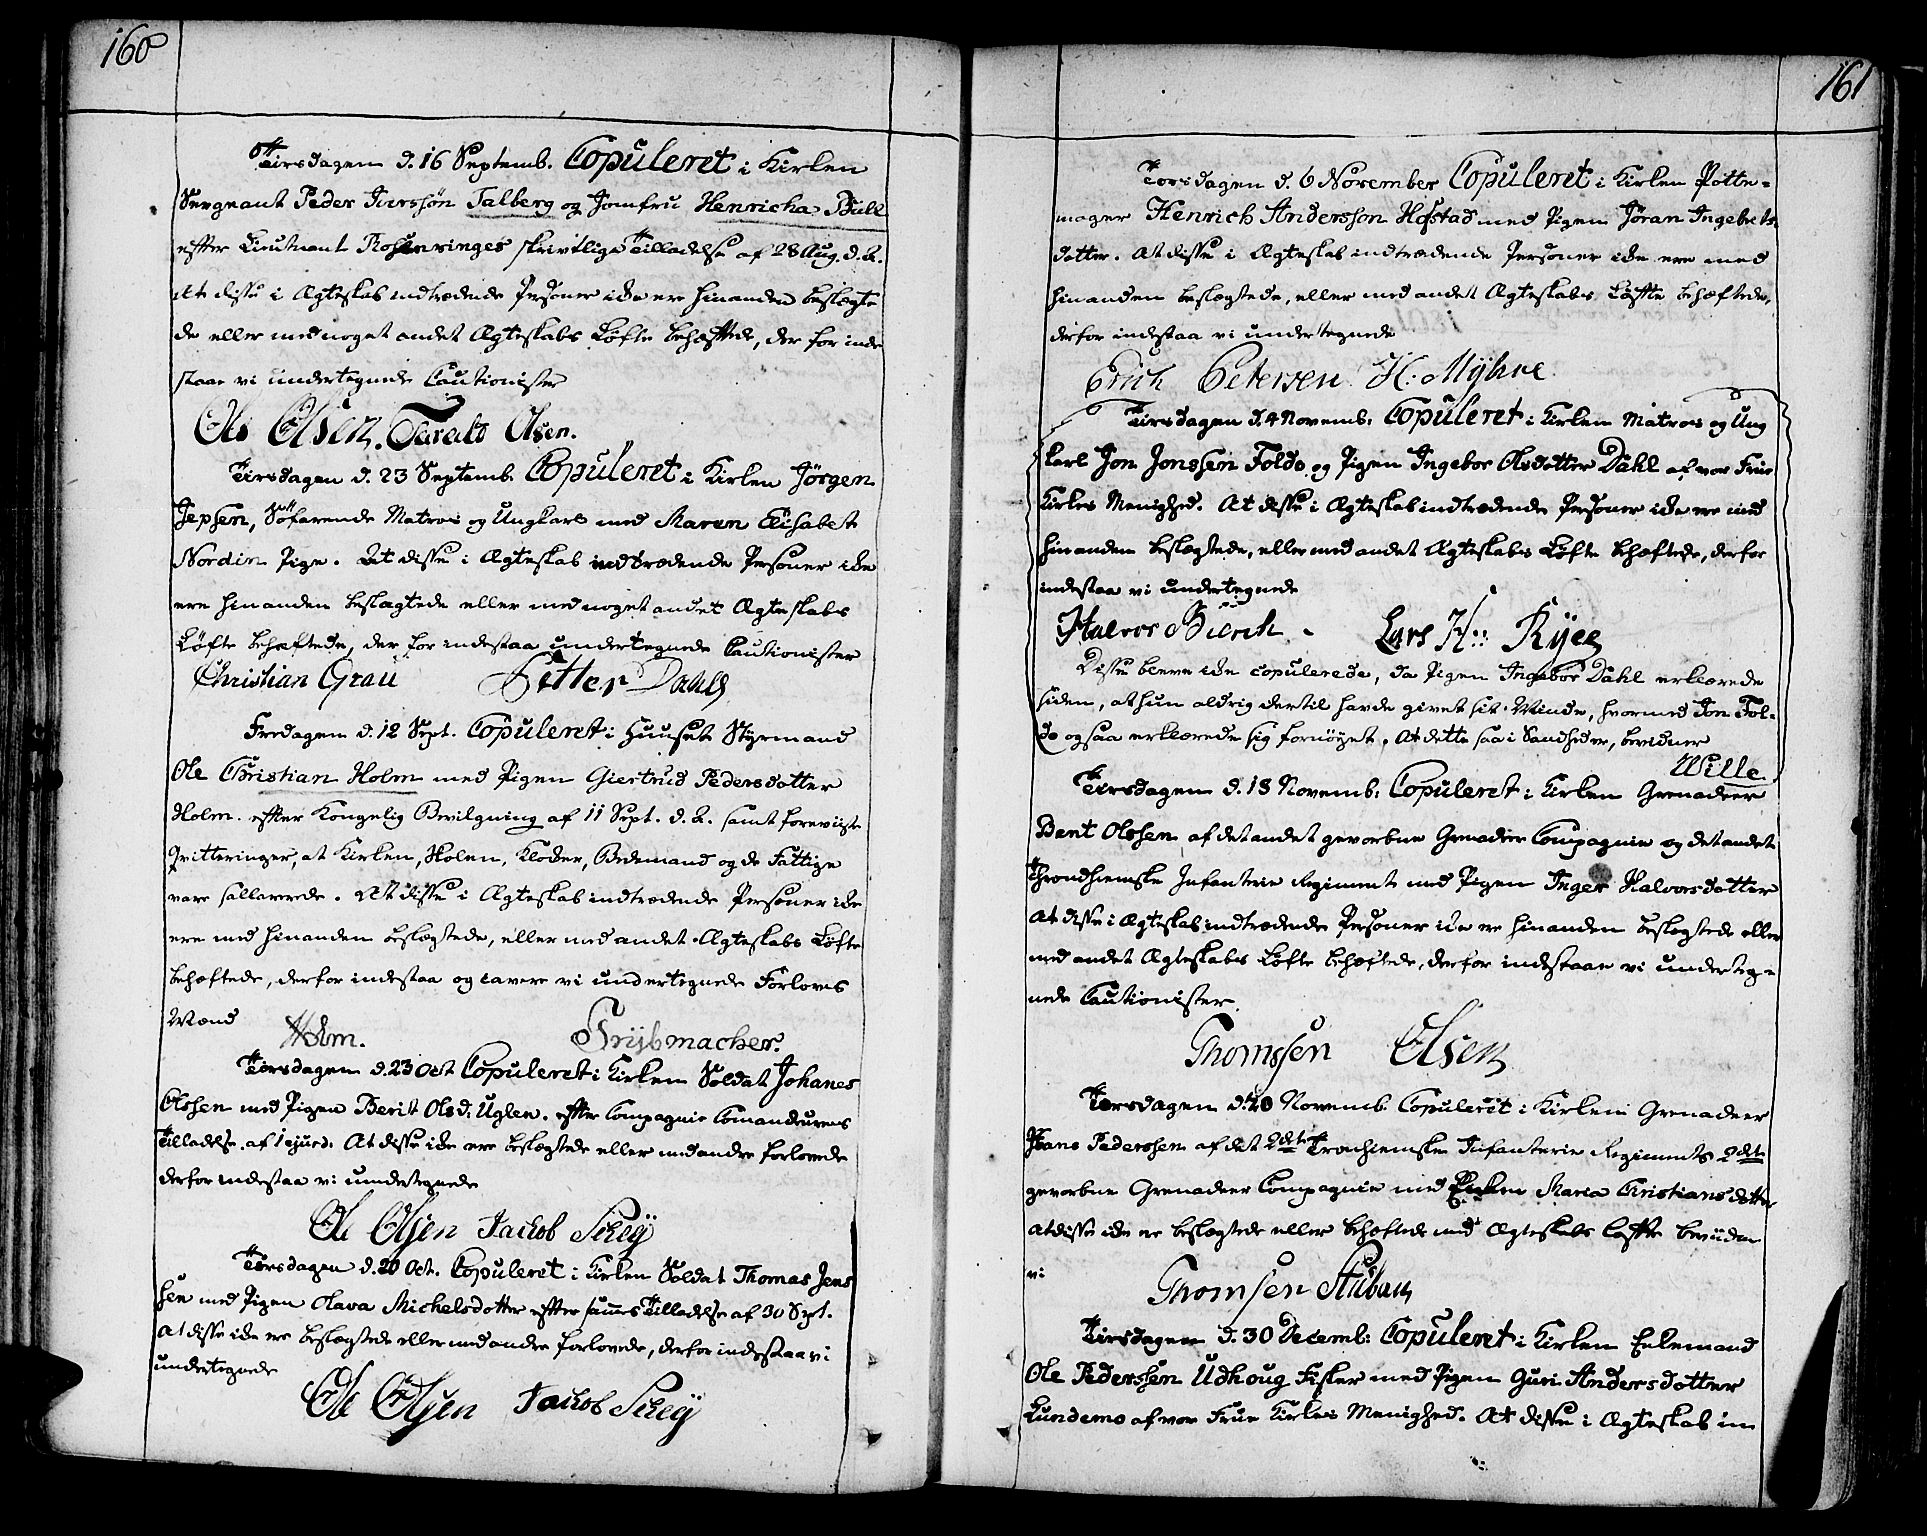 160
Tirsdagen d. 16 Septemb. Copuleret i Kirken
Sergeant Peder Iverssøn Talberg og Jomfru Henricha Bull
efter Lieutnant Rosenvinges skrivtlige Tilladelse af 28 Aug. d. A.
At disse i Ægteskab indtrædende Personer icke ere hinanden beslægte
de eller med noget andet Ægteskabs Løfte behæftede, der for inde
staae vi undertegnede Cautionister
Ole Olsen. Olsen.
Tirsdagen d. 23 Septemb. Copuleret i Kirken Jørgen
Jepsen, Søfarende Matros og Ungkarl med Maren Elisabet
Nordin Pige. At disse i Ægteskab indtrædende Personer icke
ere hinanden beslægtede eller med noget andet Ægteskabs
Løfte behæftede, der for indestaa undertegnede Cautionister
Christian Grau Petter Dahls
Fredagen d. 12 Sept. Copuleret i Huuset Styrmand
Ole Christian Holm med Pigen Giertrud Pedersdatter
Holm. efter Kongelig Bevilgning af 11 Sept. d. A. samt foreviiste
Qvitteringer, at Kirken, Skolen, Klocker, Bedemand og de Fattige
vare sallarerede. At disse i Ægteskab indtrædende Personer icke
ere med hinanden beslægtede, eller med andet Ægteskabs Løfte
behæftede, derfor indestaa og cavere vi undertegnede Forlovs
Mænd
Holm. Trijbmacher.
Torsdagen d. 23 Oct Copuleret i Kirken Soldat Johanes
Olssen med Pigen Berit Olsd. Uglen. efter Compagnie Comandeurens
Tilladelse af 1 ejusd. At disse icke ere beslægtede eller med andre forlovede
derfor indestaa vi undertegnede
Ole Olsen Jackob Schey
Torsdagen d. 20 Oct. Copuleret i Kirken Soldat Thomas Jens
sen med Pigen Olava Michelsdatter efter samme Tilladelse af 30 Sept.
At disse icke ere beslægtede eller med andre forlovede, derfor indestaa vi
undertegnede
Ole Olsen Jackob Schey
161
Torsdagen d. 6 November Copuleret i Kirken Potte-
mager Henrich Andersson Hofstad med Pigen Jøran Ingebrets
datter. At disse i Ægteskab indtrædende Personer icke ere med
hinanden beslægtede, eller med andet Ægteskabs Løfte behæftede,
derfor indestaa vi undertegnede
Erich Petersen H: Myhre
Tirsdagen d. 4 Novemb: Copuleret i Kirken Matros og Ung
karl Jon Jonssen Foldo og Pigen Ingebor Olsdatter Dahl af vor Frue
Kirkes Menighed. At disse i Ægteskab indtrædende Personer icke ere med
hinanden beslægtede, eller med andet Ægteskabs Løfte behæftede, derfor
indestaa vi undertegnede
Halvor Lars H:: Ryee
Disse bleve icke copulerede, da Pigen Ingebor Dahl erklærede
siden, at hun aldrig dertil havde givet sit Minde, hvormed Jon Fol-
do ogsaa erklærede sig fornøyet. At dette saa i Sandhed er, bevidner
Wille.
Tirsdagen d. 18 Novemb: Copuleret i Kirken Grenadeer
Bent Olssen af det andet gevorbne Grenadeer Compagnie og det andet
Throndhiemske Infanterie Regiment med Pigen Inger Halvorsdatter
At disse i Ægteskab indtrædende Personer icke ere hinanden beslægtede eller
med andet Ægteskabs Løfte behæftede, derfor indestaae vi underteg-
nede Cautionister
Thomssen Olsen
Torsdagen d. 20 Novemb. Copuleret i Kirken Grenadeer
Hans Pederssen af det 2det Tronhiemske Infanterie Regiments 2det
gevorbne Grenadeer Compagnie med Maria Christiansdatter
At disse icke ere beslægtede eller behæftede med Ægteskabs Løfte bevidne
vi
Thomsen Stubau
Tirsdagen d. 30 Decemb: Copuleret i Kirken Enkemand
Ole Pederssen Udhoug Fisker med Pigen Guri Andersdatter
Lundemo af vor Frue Kirkes Menighed. At disse i Ægteskab in